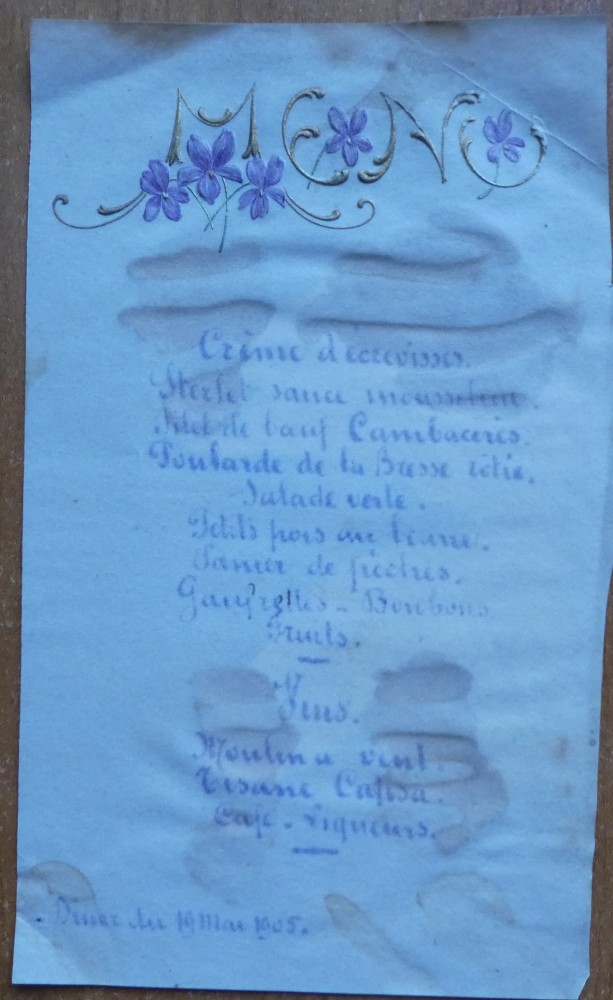 MENU
Crème d'écrevisses.
Sterlet sauce mousseline.
Filet de bœuf Cambacérès.
Poularde de la Bresse rôtie.
Salade verte.
Petits pois au beurre.
Panier de pêches.
Gaufrettes - Bonbons
Fruits.
Vins.
Moulin à vent.
Tisane Capsa.
Café - Liqueurs.
Diner du 19 Mai 1905.